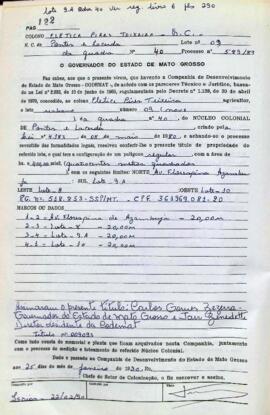 Lote 9A Qdra 40 Ver reg. livro 6 fls 290
Pag.
122
COLONO PLETICE PIRES TEIXEIRA - B.C.
N. C. de Pontes e Lacerda Lote n.º 09
da quadra Nº 40 Processo n.º 543/89
O GOVERNADOR DO ESTADO DE MATO GROSSO
Faz saber, aos que o presente virem, que havendo a Companhia de Desenvolvimento
do Estado de Mato Grosso - CODEMAT, de acordo com os pareceres Técnico e Jurídico, baseados
na Lei n.º
1970, concedido, ao colono, Pletice Pires Teixeira agricultor,
o lote urbano número 09 (nove)
da quadra nº 40 do NÚCLEO COLONIAL
DE Pontes e Lacerda criado pela
Lei nº de de maio de 1980 e achando-se o processo
revestido das formalidades legais, resolveu conferir-lhe o presente título de propriedade do
referido lote, o qual tem a configuração de um polígono regular com
área de 400,00 m2 (quatrocentos metros quadrados)
com os seguintes limites: NORTE Av. Florespina
SUL Lote - 9A
LESTE Lote - 8 OESTE Lote - 10
CPF 361369081-20
MARCOS DE DADOS
1 - 2 - Av. Florespina de Azambuja - 20,00m
2 - 3 - Lote - 8 - 20,00m
3 - 4 - Lote - 9A - 20,00m
4 - 1 - Lote - 10 - 20,00m
Assinaram o presente título: Carlos Gomes Bezerra
Governador do Estado de Mato Grosso e Jair Benedetti
Diretor Presidente da Codemat
Título nº 009093
Como tudo consta do memorial e planta que ficam arquivados nesta Companhia, juntamente
com o processo de medição e loteamento do referido Núcleo Colonial.
Dado e passado na Companhia de Desenvolvimento do Estado de Mato Grosso
aos 25 dias do mês de janeiro de 1990. Eu,
Chefe do Setor de Colonização, o fiz escrever e assino.
22/02/90